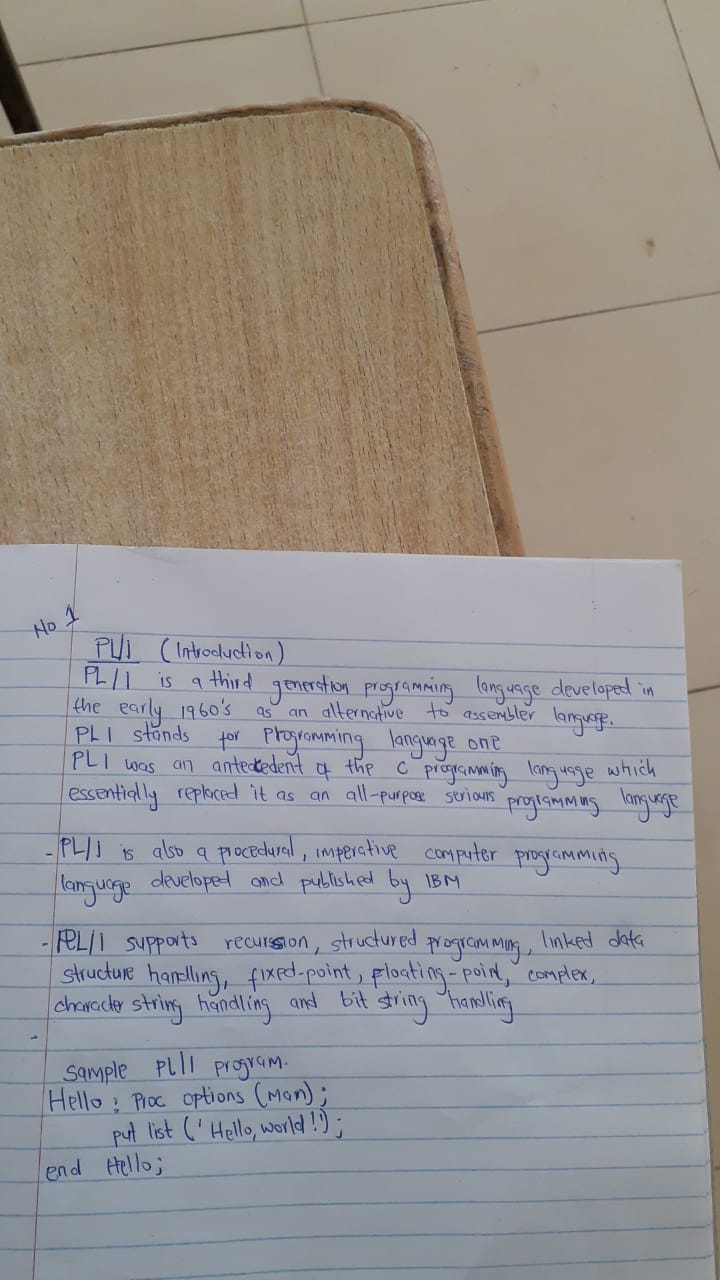 No 1
PL/I (Introduction)
PL/I is a third generation programming language developed in
the early 1960's as an alternative to assembler language.
PL I stands for Programming language one
PL I was an antecedent of the C programming language which
essentially replaced it as an all-purpose serious programming language
- PL/I is also a procedural, imperative computer programming
language developed and published by IBM
- PL/I supports recursion, structured programming, linked data
structure handling, fixed-point, floating-point, complex,
character string handling and bit string handling
-
Sample PL/I program.
Hello: Proc options (Man);
put list ('Hello, world!');
end Hello;